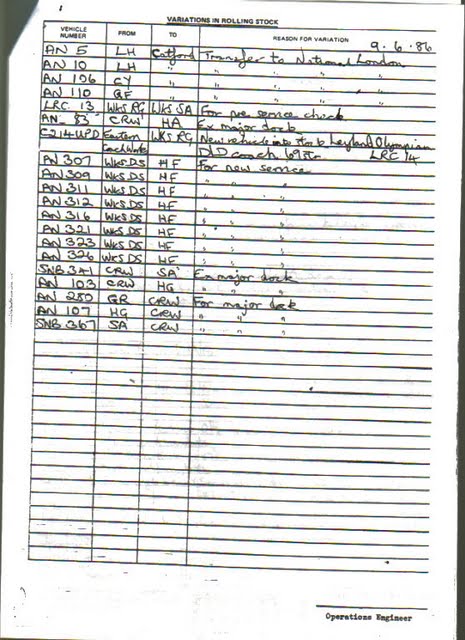 VARIATIONS IN ROLLING STOCK
VEHICLE NUMBER FROM TO REASON FOR VARIATION 9.6.86
AN 5 LH Catford Transfer to National London
AN 10 LH " " " "
AN 106 CY " " " "
AN 110 GF " " " "
LRC 13 WKS RG WKS SA For pre service check
AN 83 CRW HA Ex major dock
C214UPD Eastern Coachworks WKS RG New vehicle into stock Leyland Olympian
D/D coach 69str LRC 14
AN 307 WKS DS HF For new service
AN 309 WKS DS HF " " "
AN 311 WKS DS HF " " "
AN 312 WKS DS HF " " "
AN 316 WKS DS HF " " "
AN 321 WKS DS HF " " "
AN 323 WKS DS HF " " "
AN 326 WKS DS HF " " "
SNB 341 CRW SA Ex major dock
AN 103 CRW HG " " "
AN 280 GR CRW For major dock
AN 107 HG CRW " " "
SNB 367 SA CRW " " "
Operations Engineer